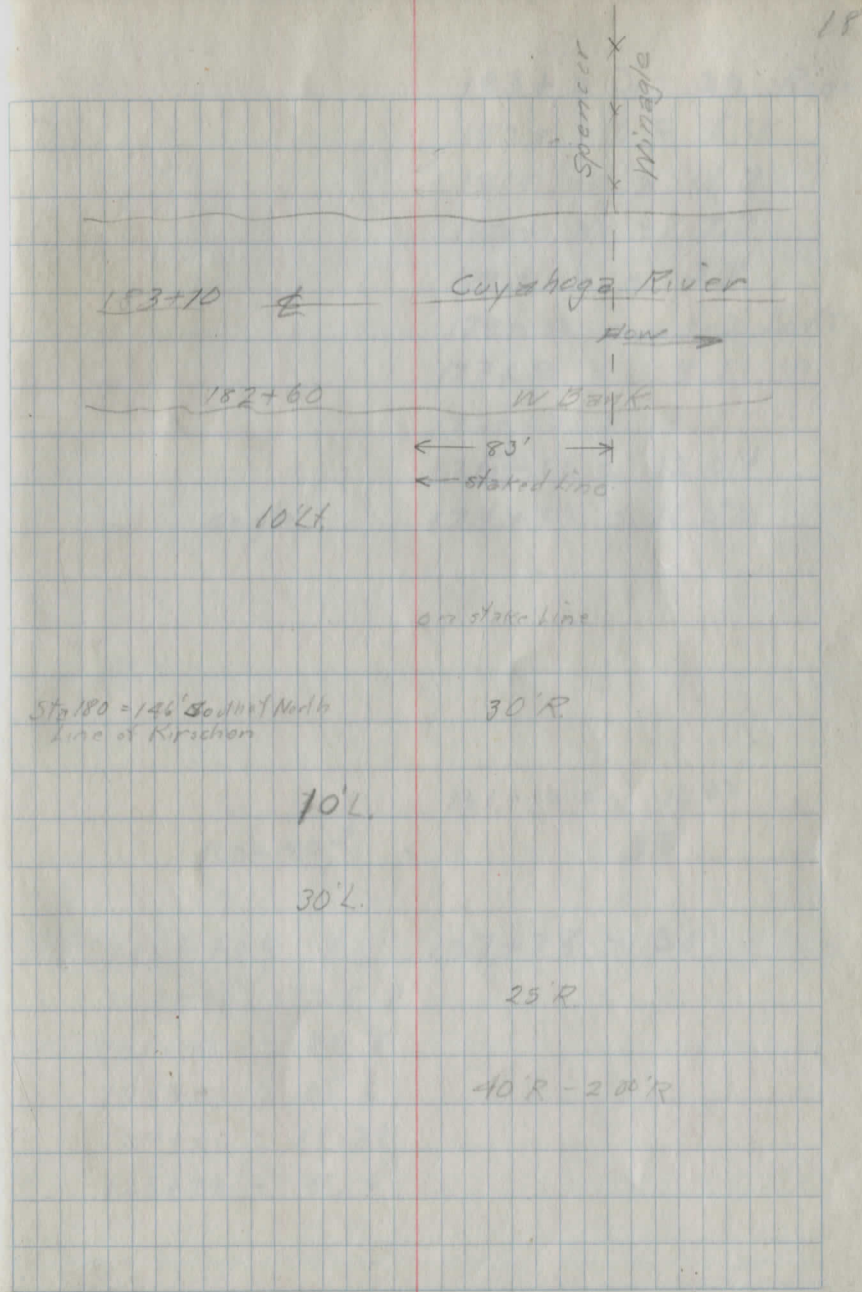 18
Spencer
Winagle
183+10 ℄ Cuyahoga River
Flow
182+60 W Bank
83'
staked Line
10'Lt.
on stake Line
30'R.
Sta 180 = 146' South of North
Line of
10'L.
30'L.
25'R.
40'R - 200'R